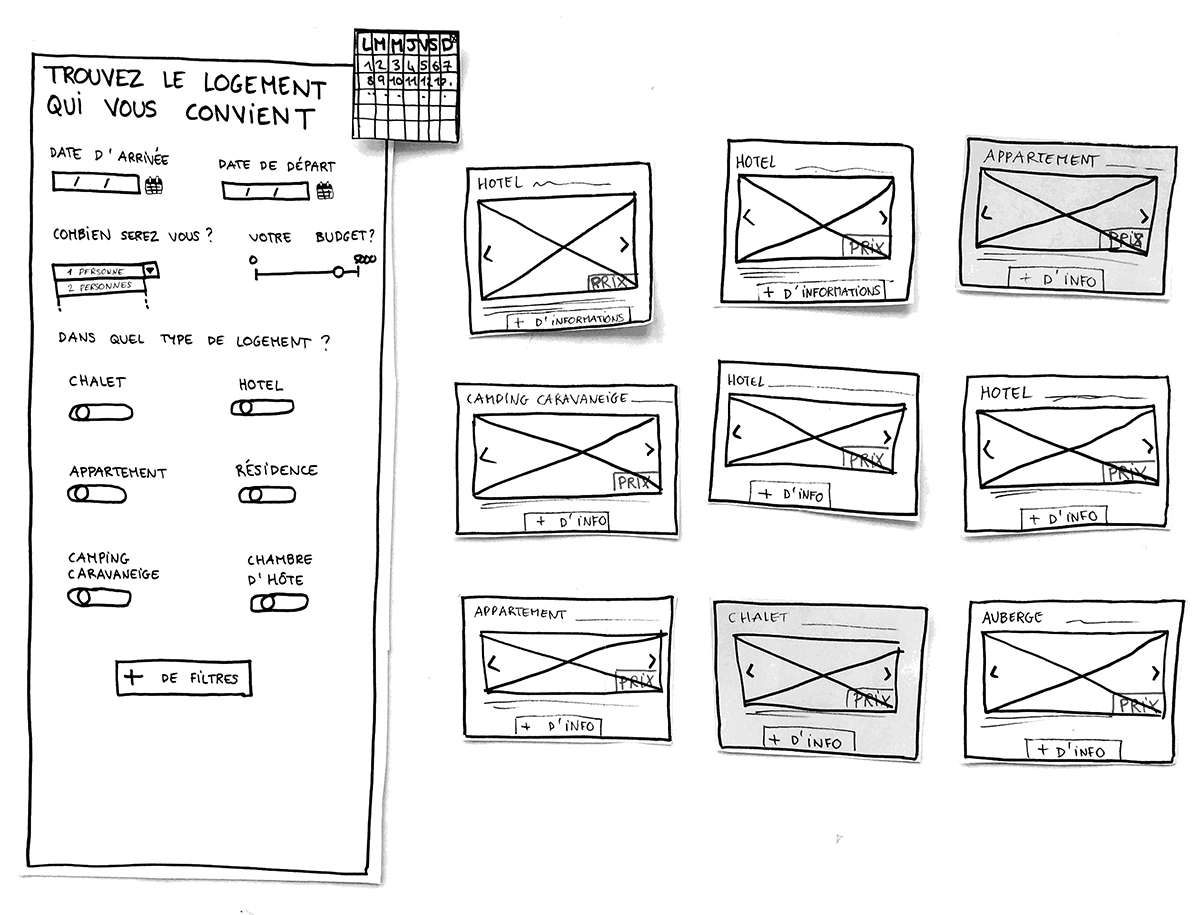 L M M J V S D
1 2 3 4 5 6 7
8 9 10 11 12
TROUVEZ LE LOGEMENT
QUI VOUS CONVIENT
DATE D'ARRIVÉE
/ /
DATE DE DÉPART
/ /
COMBIEN SEREZ VOUS ?
1 PERSONNE
2 PERSONNES
VOTRE BUDGET?
0
5000
DANS QUEL TYPE DE LOGEMENT ?
CHALET
HOTEL
APPARTEMENT
RÉSIDENCE
CAMPING
CARAVANEIGE
CHAMBRE
D'HÔTE
+ DE FILTRES
HOTEL
< >
PRIX
+ D'INFORMATIONS
HOTEL
< >
PRIX
+ D'INFORMATIONS
APPARTEMENT
< >
PRIX
+ D'INFO
CAMPING CARAVANEIGE
< >
PRIX
+ D'INFO
HOTEL
< >
PRIX
+ D'INFO
HOTEL
< >
PRIX
+ D'INFO
APPARTEMENT
< >
PRIX
+ D'INFO
CHALET
< >
PRIX
+ D'INFO
AUBERGE
< >
PRIX
+ D'INFO